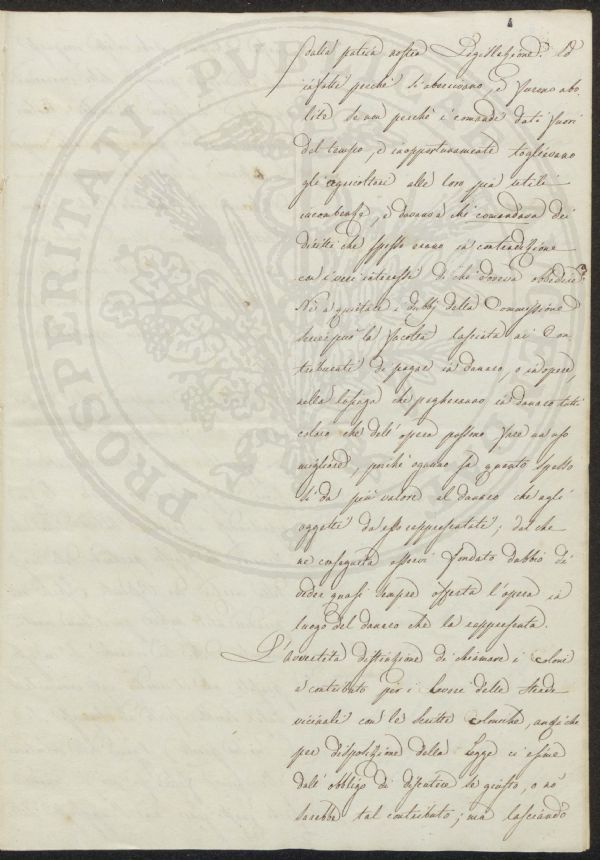 4
dalla patria nostra Legislazione. Ed
infatti perchè si aborrivano, e furono abo-
lite se non perchè i comandi dati fuori
del tempo, e inopportunamente toglievano
gli agricoltori alle loro più utili
incombenze, e davano a chi comandava dei
diritti che spesso erano in contradizione
con i veri interessi di chi doveva obbedire?
Nè a quietare i dubbj della Commissione
servì più la facoltà lasciata ai Con-
tribuenti di pagare in danaro, o in opere,
nella lusinga che pagheranno in danaro tutti
coloro che dell'opera possono fare un uso
migliore, poichè ognuno sa quanto spesso
si dà più valore al danaro che agli
oggetti da esso rappresentati; dal che
ne conseguita esservi fondato dubbio di
veder quasi sempre offerta l'opera in
luogo del danaro che la rappresenta.
L'avvertita distinzione di chiamare i Coloni
a contributo per i lavori delle strade
vicinali con le scritte Coloniche, anzi che
per disposizione della Legge ci esime
dall'obbligo di discutere se giusto, o nò
sarebbe tal contributo; ma lasciando
PROSPERITATI PUBLICAE